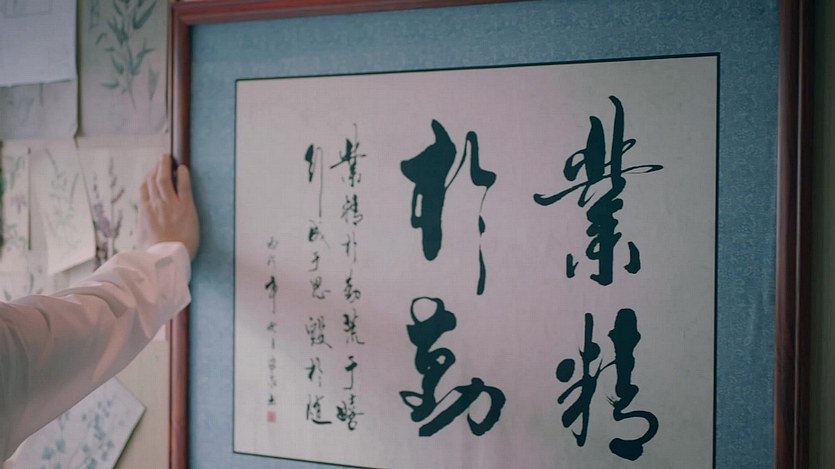 業精
於勤
業精於勤荒于嬉
行成于思毀於随
丙戌年